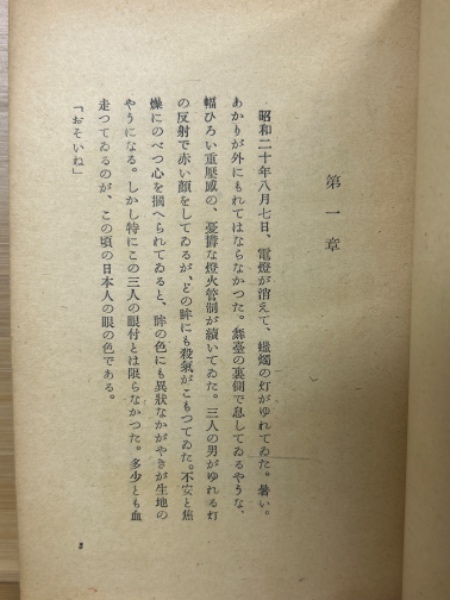 第一章
昭和二十年八月七日、電燈が消えて、蠟燭の灯がゆれてゐた。暑い。
あかりが外にもれてはならなかつた。舞臺の裏側で息してゐるやうな、
幅ひろい重壓感の、憂鬱な燈火管制が續いてゐた。三人の男がゆれる灯
の反射で赤い顏をしてゐるが、どの眸にも殺氣がこもつてゐた。不安と焦
燥にのべつ心を搦へられてゐると、眸の色にも異狀なかがやきが生地の
やうになる。しかし特にこの三人の眼付とは限らなかつた。多少とも血
走つてゐるのが、この頃の日本人の眼の色である。
「おそいね」
3